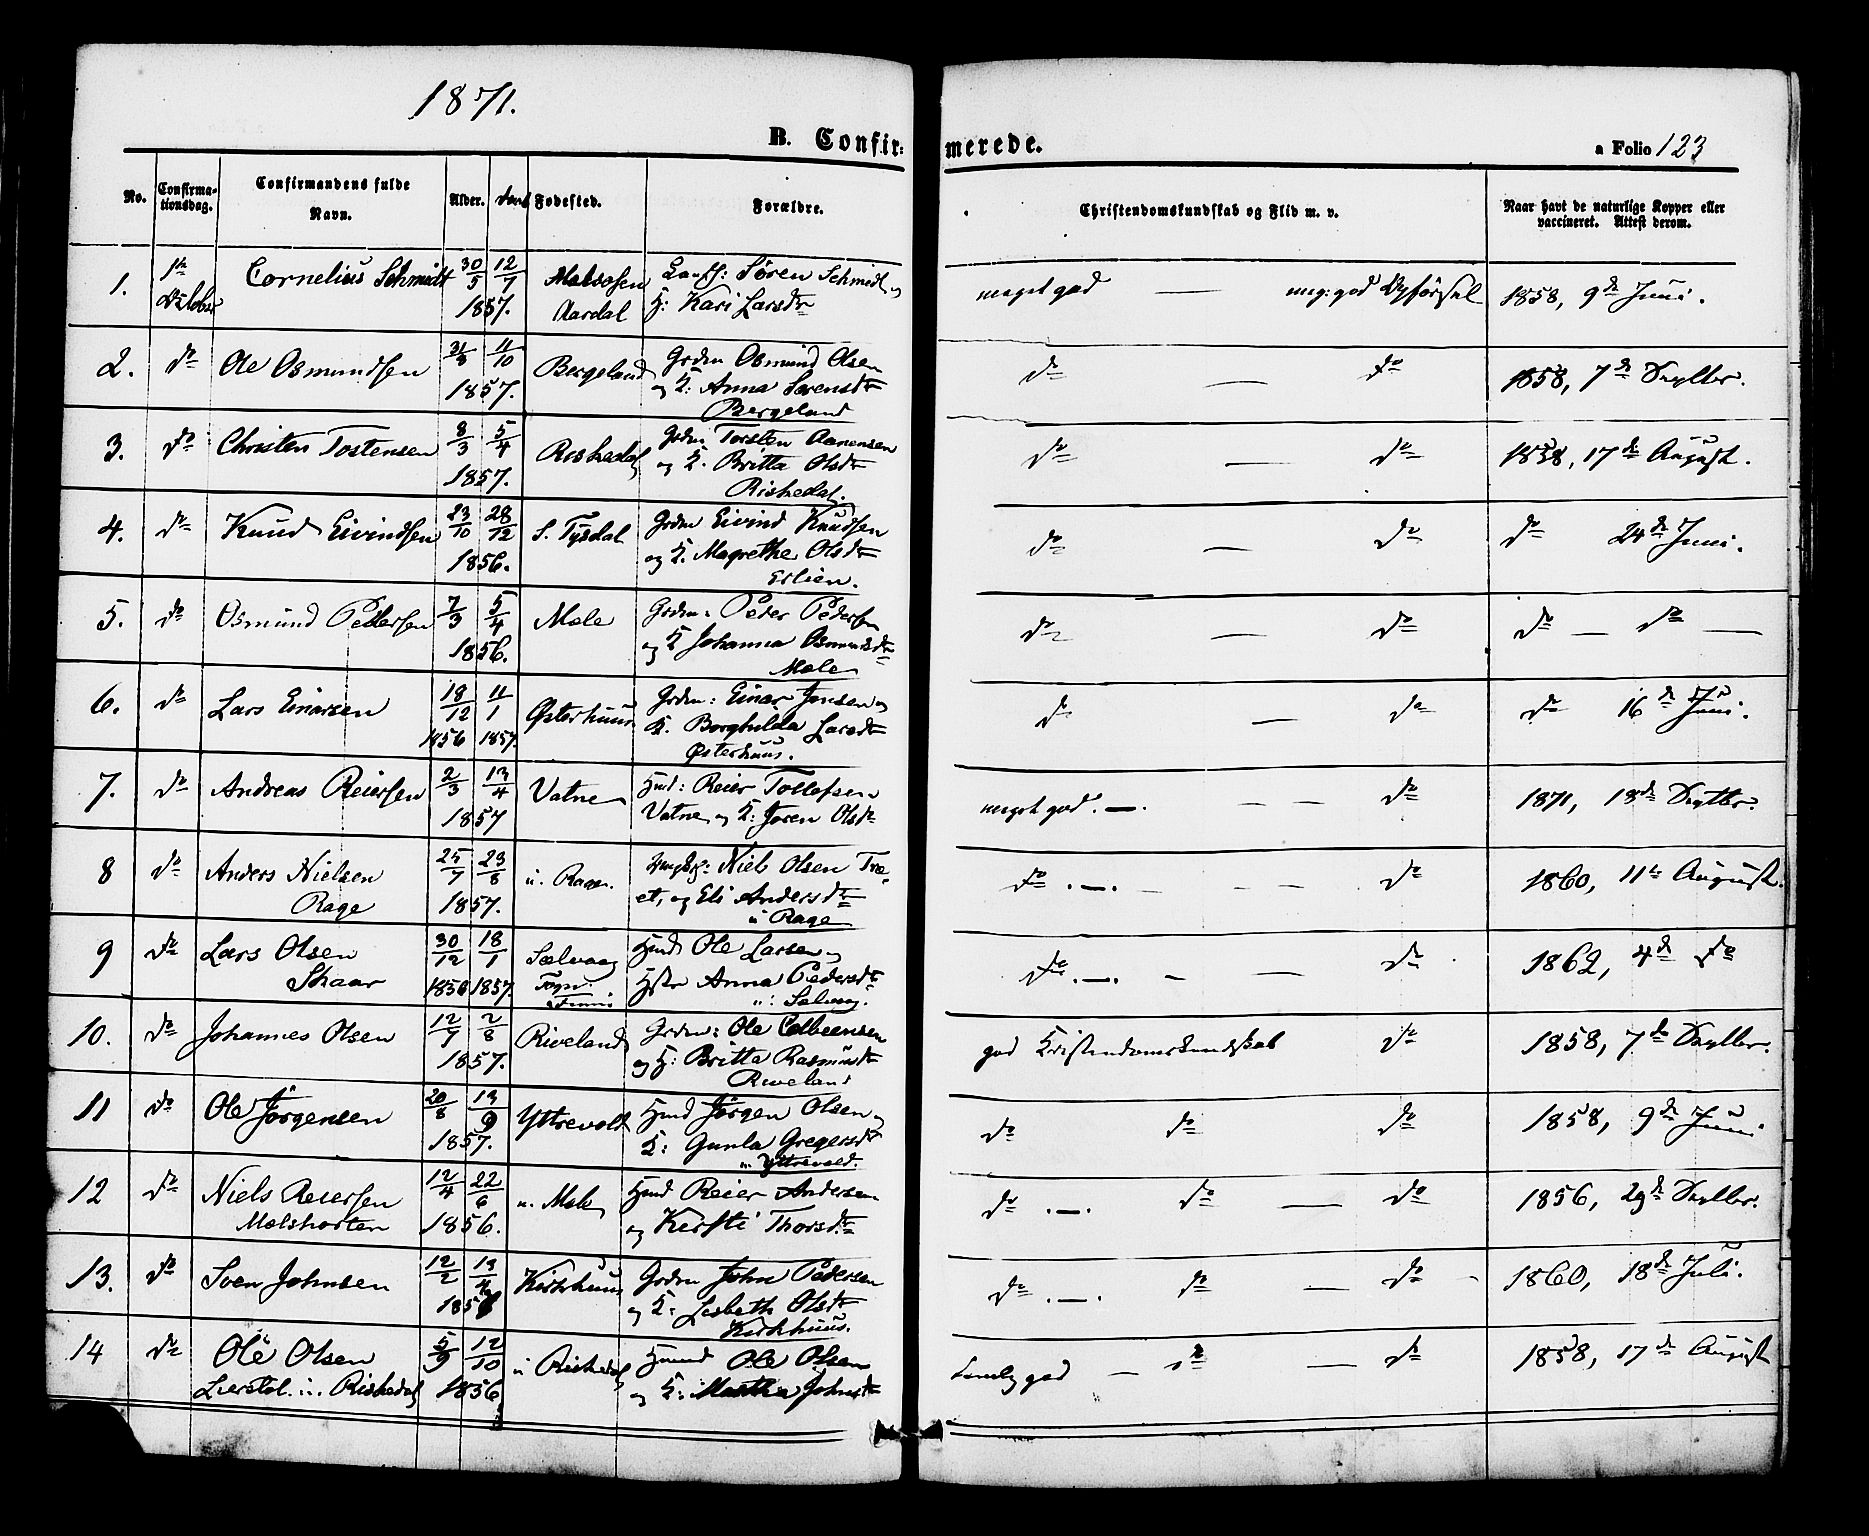 1871.
B. Confirmerede.
a Folio 123
No.
Confirmationsdag.
Confirmandens fulde Navn.
Alder.
Fødested.
Forældre.
Christendomskundskab og Flid m. v.
Naar havt de naturlige Kopper eller vaccineret. Attest derom.
1. 1ste October Cornelius Schmidt 30/5 12/7 1857. Aardal Søren Schmidt og
H: Kari Larsdr meget god — meg: god Opførsel 1858, 9de Juni.
2. do Ole Osmundsen 31/8 11/10 1857. Bergeland Grdm Osmund Olsen
og K: Anna Sørensdr
Bergeland do — do 1858, 7de Septbr.
3. do Christen Tostensen 8/3 5/4 1857. Riskedal Grdm Torsten Aanensen
og K. Britta Olsdr
Riskedal. do — do 1858, 17de August.
4. do Knud Eivindsen 23/10 28/12 1856. S. Tysdal Grdm Eivind Knudsen
og K. Magrethe Olsdr
Erlien. do — do do 24de Juni.
5. do Osmund Pedersen 7/3 5/4 1856. Mæle Grdm: Peder Pedersen
og K Johanna Osmundsdr
Mæle do — do do — do —
6. do Lars Einarsen 18/12 1856 11/1 1857. Østerhuus Grdm: Einar Jonsen og
K. Borghilda Larsdr
Østerhuus. do — do do 16de Juni.
7. do Andreas Reiersen 2/3 13/4 1857 Vatne Hmd: Reier Tollefsen
Vatne og K: Joren Olsdr meget god. — . — — do 1871, 18de Septbr.
8 do Anders Nielsen
Rage 25/7 23/8 1857. u. Rage. Niels Olsen Træ-
et, og Eli Andersdr
u Rage do . — . — — — do 1860, 11te August.
9 do Lars Olsen
Skaar 30/12 1856 18/1 1857. Sælvaag Hmd Ole Larsen og
Hstr Anna Pedersdr
do . — . — do 1862, 4de do
10. do Johannes Olsen 12/7 2/8 1857. Riveland Grdm: Ole Colbeensen
og H: Britta Rasmusdr
Riveland god Kristendomskundskab do 1858, 7de Septbr.
11 do Ole Jørgensen 20/8 13/9 1857. Yttrevold Hmd Jørgen Olsen og
K: Gunla Gregersdr
u. Yttrevold. do do do 1858, 9de Juni
12 do Niels Reiersen
Melshorten 12/4 22/6 1856. u. Mæle Hmd Reier Andersen
og Kirsti Thorsdr do . — . do — do 1856, 29de Septbr.
13. do Sven Johnsen 12/2 13/4 Kirkhuus Grdm John Pedersen
og K: Lisbeth Olsdr
Kirkhuus. do . — . do — do 1860, 18de Juli.
14 do Ole Olsen
i Riskedal 5/9 12/10 1856 u Riskedal Hmd Ole Olsen
og K: Martha Johnsdr temlig god — do — do 1858, 17de August